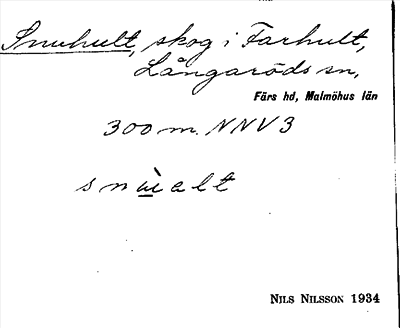 Snuhult, skog i Farhult,
Långaröds sn,
Färs hd, Malmöhus län
300 m. NNV 3
NILS NILSSON 1934